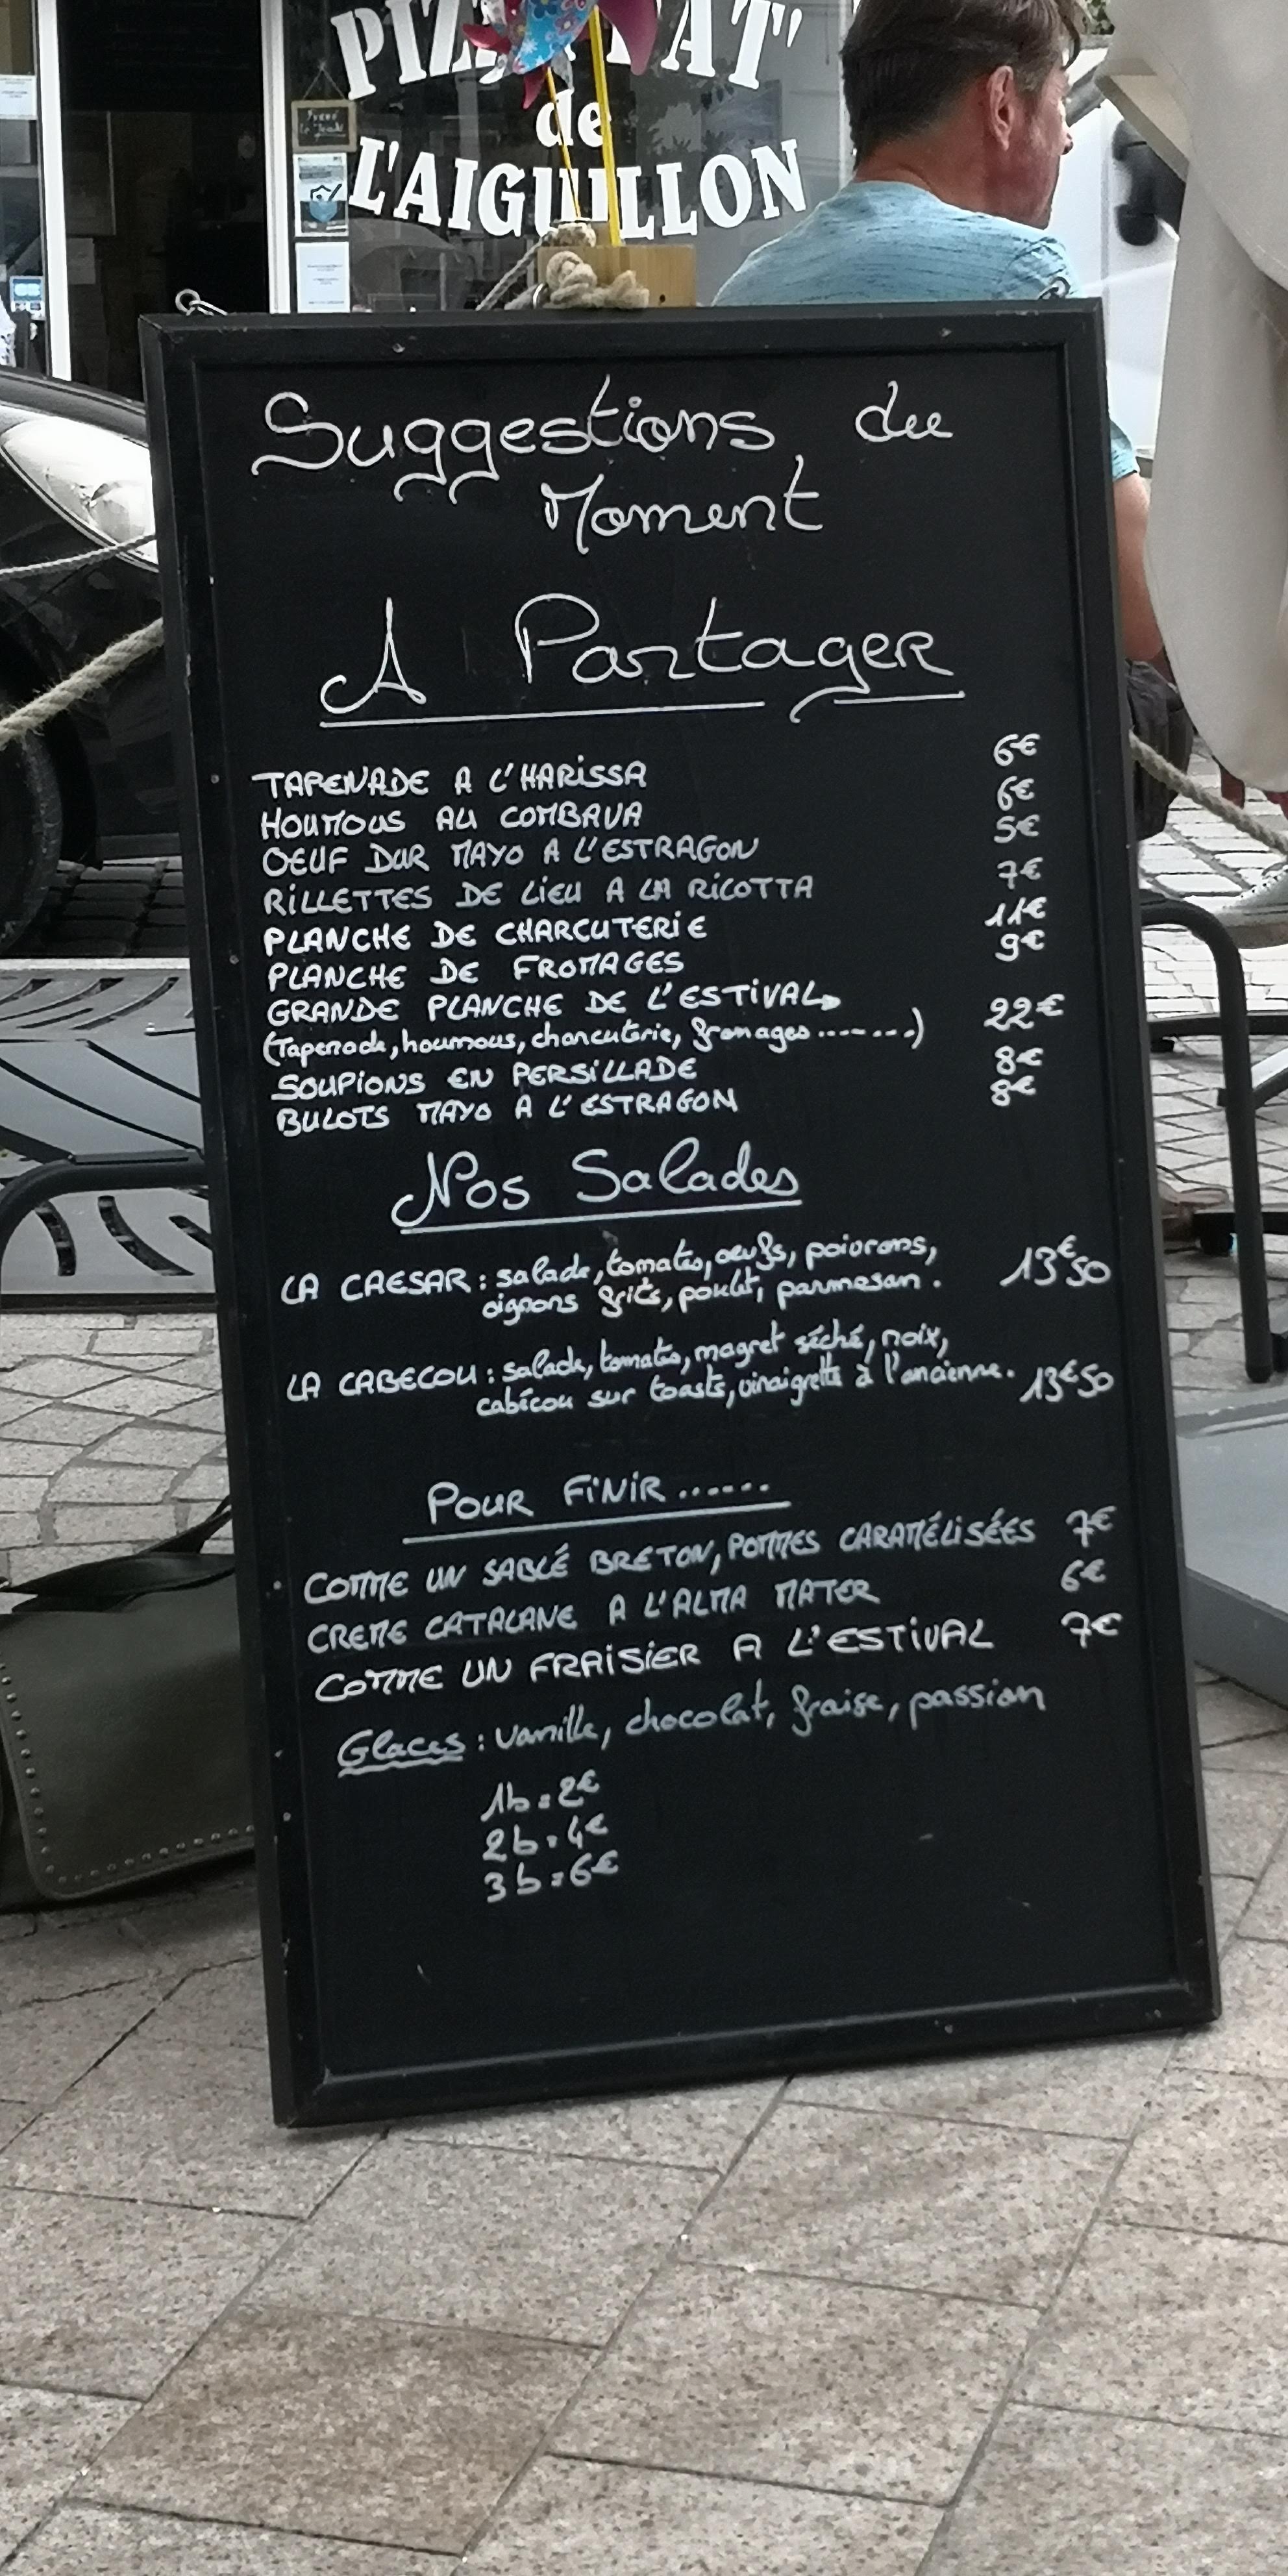 de
L'AIGUILLON
Suggestions du
Moment
A Partager
TAPENADE A L'HARISSA 6€
HOUMOUS AU COMBAVA 6€
OEUF DUR MAYO A L'ESTRAGON 5€
RILLETTES DE LIEU A LA RICOTTA 7€
PLANCHE DE CHARCUTERIE 11€
PLANCHE DE FROMAGES 9€
GRANDE PLANCHE DE L'ESTIVAL
(Tapenade, houmous, charcuterie, fromages .......) 22€
SOUPIONS EN PERSILLADE 8€
BULOTS MAYO A L'ESTRAGON 8€
Nos Salades
LA CAESAR : salade, tomates, oeufs, poivrons,
oignons frits, poulet, parmesan. 13€50
LA CABECOU : salade, tomates, magret séché, noix,
cabécou sur toasts, vinaigrette à l'ancienne. 13€50
POUR FINIR ......
COMME UN SABLÉ BRETON, POMMES CARAMÉLISÉES 7€
CREME CATALANE A L'ALMA MATER 6€
COMME UN FRAISIER A L'ESTIVAL 7€
Glaces : vanille, chocolat, fraise, passion
1b = 2€
2b = 4€
3b = 6€